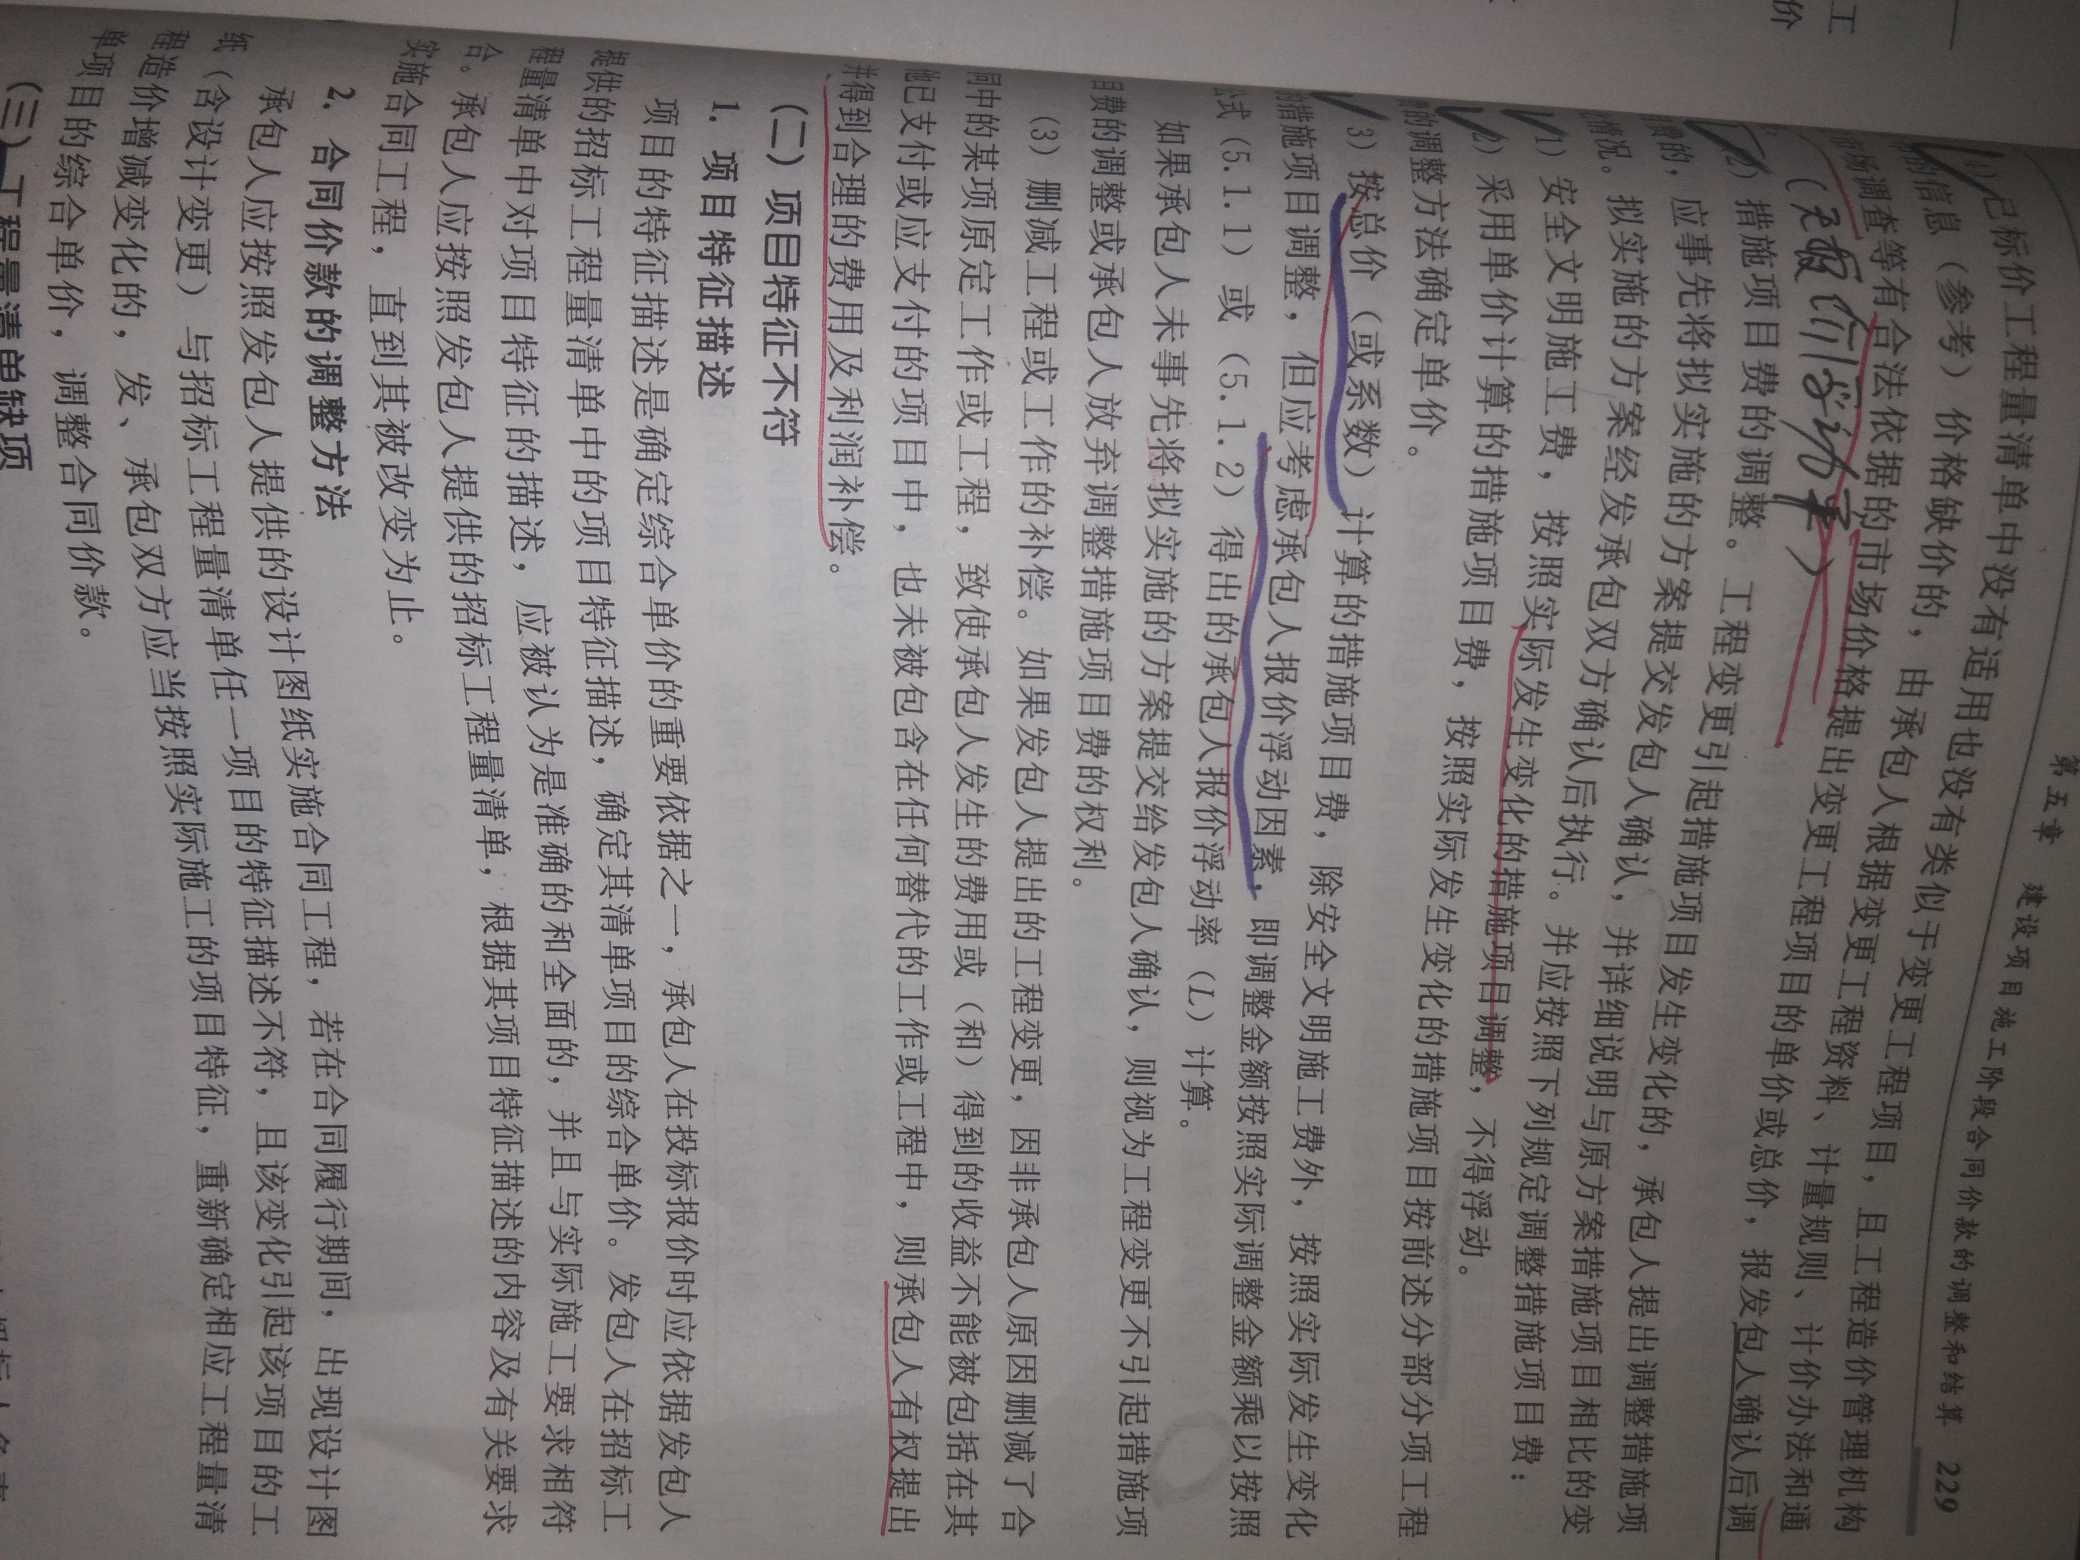 第五章 建设项目施工阶段合同价款的调整和结算 229
已标价工程量清单中没有适用也没有类似于变更工程项目，且工程造价管理机构
的信息（参考）价格缺价的，由承包人根据变更工程资料、计量规则、计价办法和通
场调查等有合法依据的市场价格提出变更工程项目的单价或总价，报发包人确认后调
2）措施项目费的调整。工程变更引起措施项目发生变化的，承包人提出调整措施项
的，应事先将拟实施的方案提交发包人确认，并详细说明与原方案措施项目相比的变
情况。拟实施的方案经发承包双方确认后执行。并应按照下列规定调整措施项目费：
1）安全文明施工费，按照实际发生变化的措施项目调整，不得浮动。
2）采用单价计算的措施项目费，按照实际发生变化的措施项目按前述分部分项工程
的调整方法确定单价。
3）按总价（或系数）计算的措施项目费，除安全文明施工费外，按照实际发生变化
措施项目调整，但应考虑承包人报价浮动因素，即调整金额按照实际调整金额乘以按照
式（5.1.1）或（5.1.2）得出的承包人报价浮动率（L）计算。
如果承包人未事先将拟实施的方案提交给发包人确认，则视为工程变更不引起措施项
费的调整或承包人放弃调整措施项目费的权利。
（3）删减工程或工作的补偿。如果发包人提出的工程变更，因非承包人原因删减了合
同中的某项原定工作或工程，致使承包人发生的费用或（和）得到的收益不能被包括在其
他已支付或应支付的项目中，也未被包含在任何替代的工作或工程中，则承包人有权提出
并得到合理的费用及利润补偿。
（二）项目特征不符
1. 项目特征描述
项目的特征描述是确定综合单价的重要依据之一，承包人在投标报价时应依据发包人
提供的招标工程量清单中的项目特征描述，确定其清单项目的综合单价。发包人在招标工
程量清单中对项目特征的描述，应被认为是准确的和全面的，并且与实际施工要求相符
合。承包人应按照发包人提供的招标工程量清单，根据其项目特征描述的内容及有关要求
实施合同工程，直到其被改变为止。
2. 合同价款的调整方法
承包人应按照发包人提供的设计图纸实施合同工程，若在合同履行期间，出现设计图
纸（含设计变更）与招标工程量清单任一项目的特征描述不符，且该变化引起该项目的工
程造价增减变化的，发、承包双方应当按照实际施工的项目特征，重新确定相应工程量清
单项目的综合单价，调整合同价款。
（三）工程量清单缺项